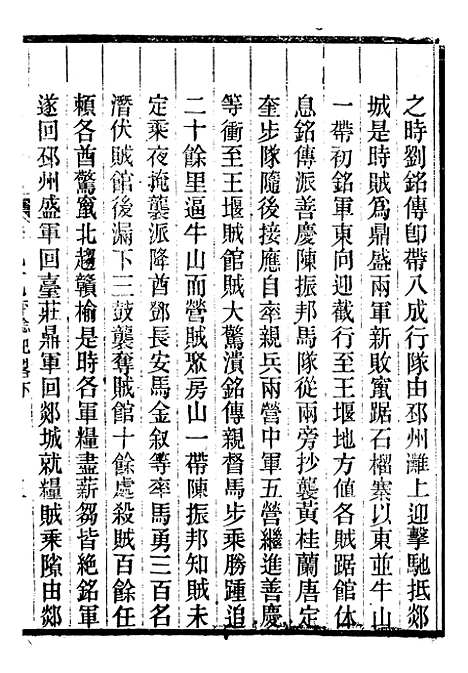 之時劉銘傳卽帶八成行隊由邳州灘上迎擊馳抵郯
城是時賊爲鼎盛兩軍新敗竄踞石榴寨以東並牛山
一帶初銘軍東向迎截行至王堰地方値各賊踞館休
息銘傳派善慶陳振邦馬隊從兩旁抄襲黃桂蘭唐定
奎步隊隨後接應自率親兵兩營中軍五營繼進善慶
等衝至王堰賊館賊大驚潰銘傳親督馬步乘勝踵追
二十餘里逼牛山而營賊聚房山一帶陳振邦知賊未
定乘夜掩襲派降酋鄧長安馬金叙等率馬勇三百名
潛伏賊館後漏下三鼓襲奪賊館十餘處殺賊百餘任
賴各酋驚竄北趨贛榆是時各軍糧盡薪芻皆絶銘軍
遂回邳州盛軍回臺莊鼎軍回郯城就糧賊乘隙由郯